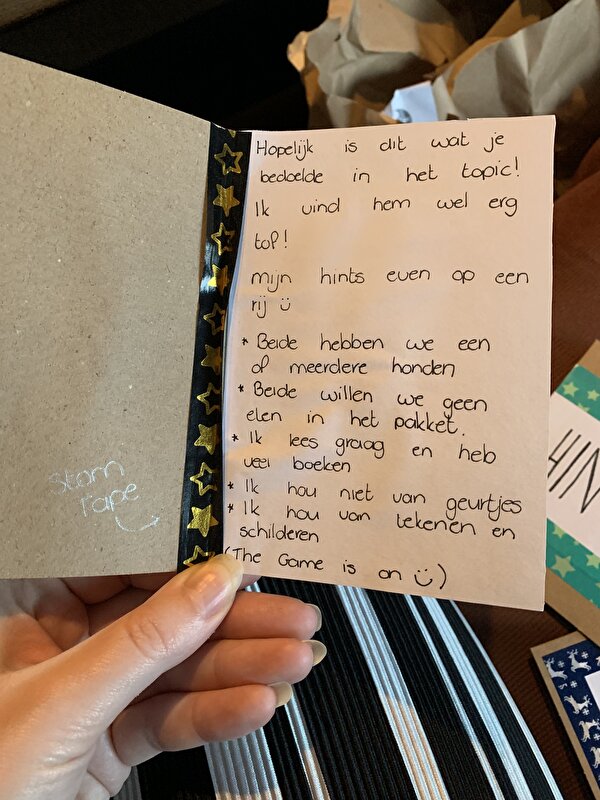 Hopelijk is dit wat je
bedoelde in het topic!
Ik vind hem wel erg
tof!
mijn hints even op een
rij ü
* Beide hebben we een
of meerdere honden
* Beide willen we geen
eten in het pakket.
* Ik lees graag en heb
veel boeken
* Ik hou niet van geurtjes
* Ik hou van tekenen en
schilderen
(The Game is on ü)
Stom
tape
HIN